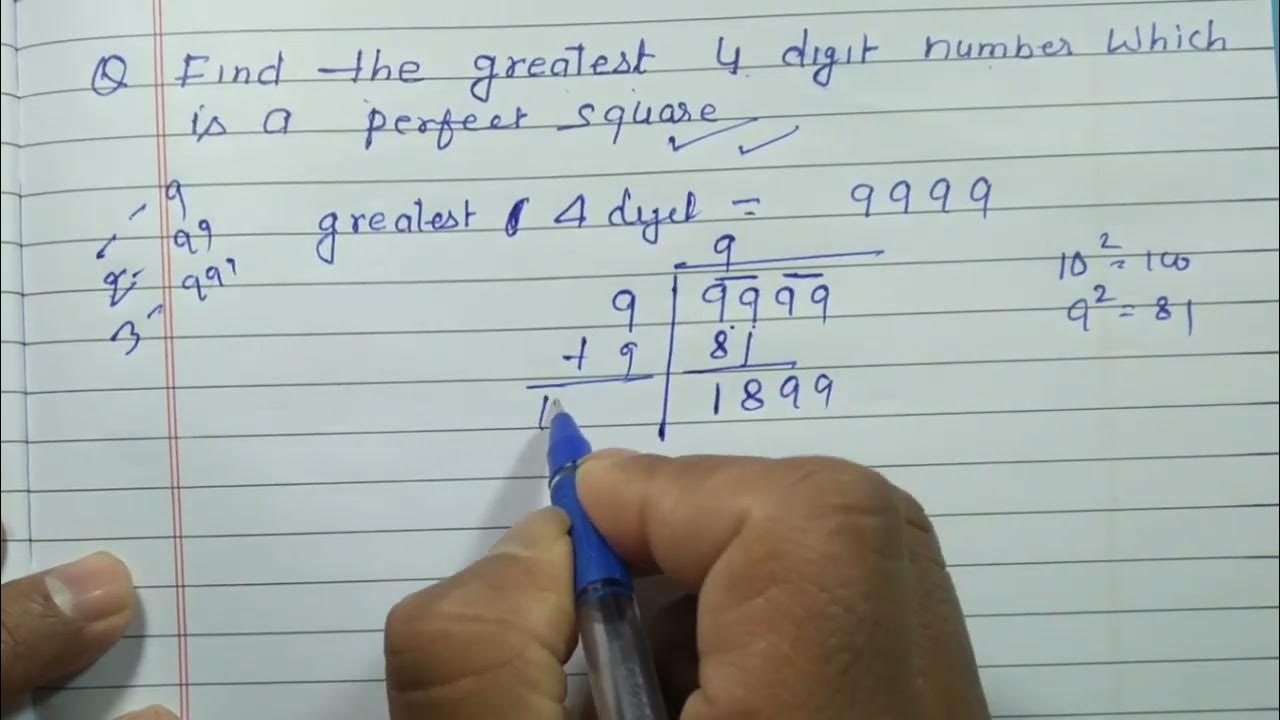 Q Find the greatest 4 digit number which
is a perfect square
9
99
999
greatest 4 = 9999
9
9 9999
+ 9 81
1 1899
10² = 100
9² = 81